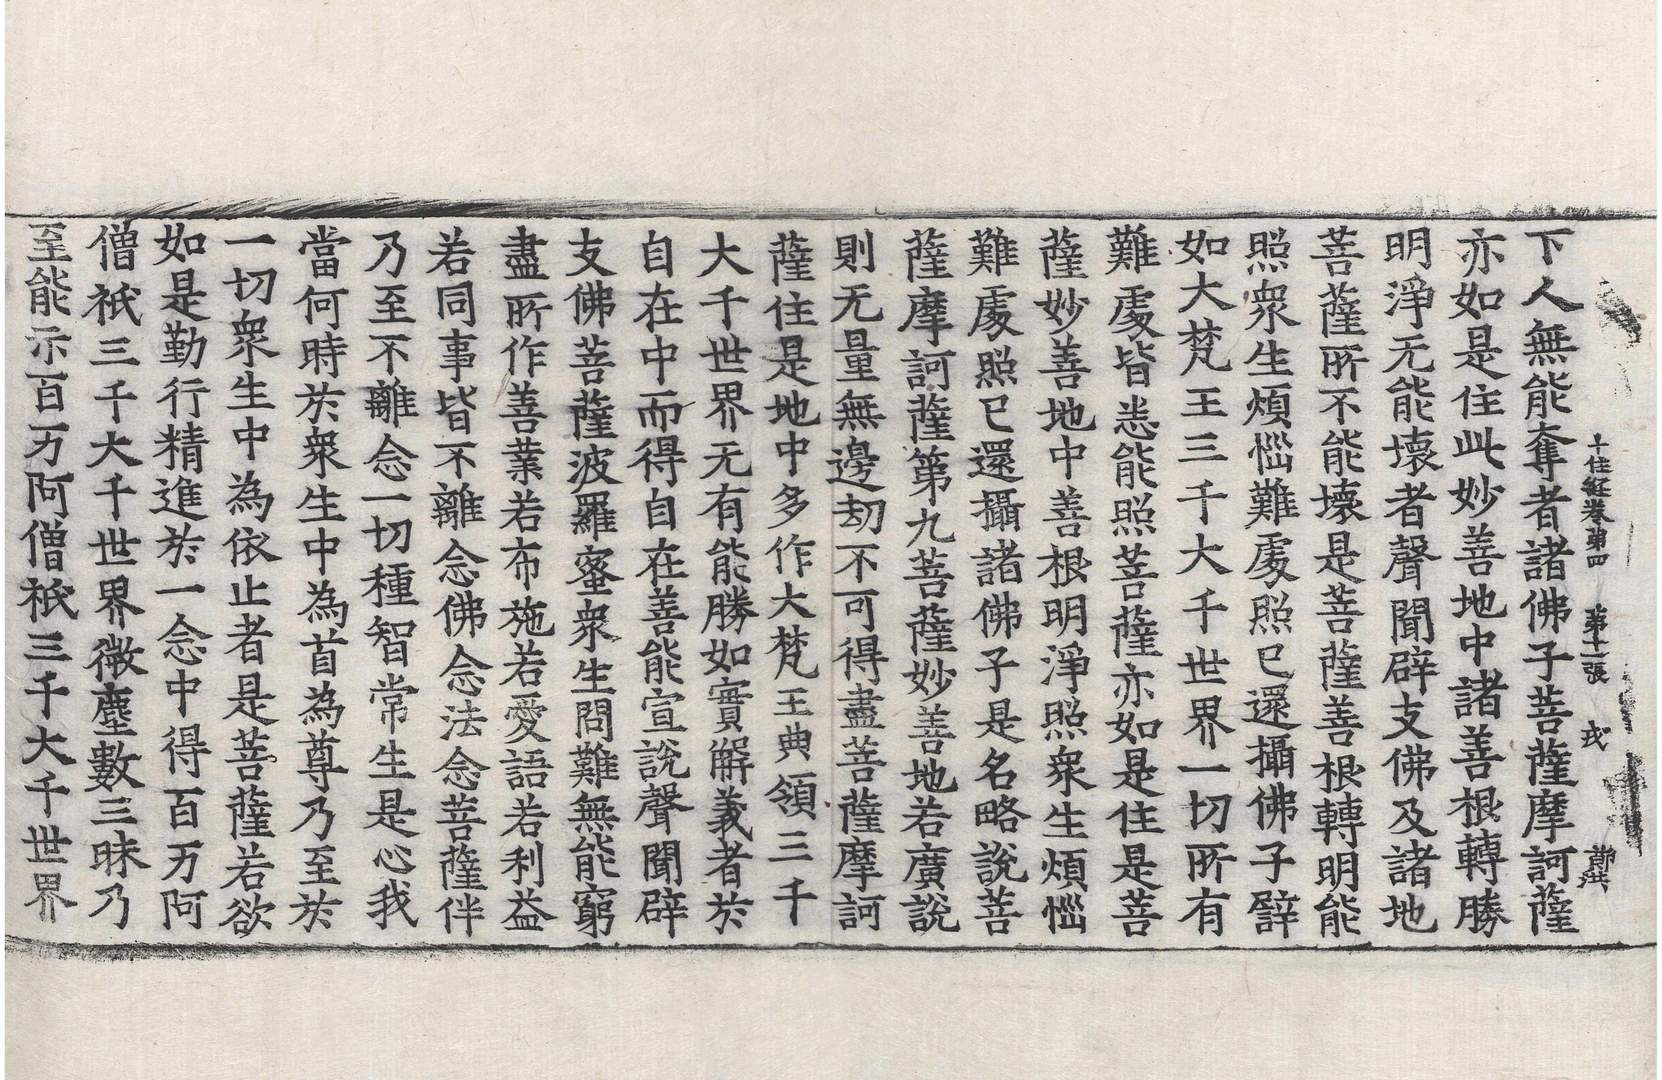 十住經卷第四　第十一張　戎
下人無能奪者諸佛子菩薩摩訶薩
亦如是住此妙善地中諸善根轉勝
明淨无能壞者聲聞辟支佛及諸地
菩薩所不能壞是菩薩善根轉明能
照衆生煩惱難處照已還攝佛子譬
如大梵王三千大千世界一切所有
難處皆悉能照菩薩亦如是住是菩
薩妙善地中善根明淨照衆生煩惱
難處照已還攝諸佛子是名略說菩
薩摩訶薩第九菩薩妙善地若廣說
則无量無邊劫不可得盡菩薩摩訶
薩住是地中多作大梵王典領三千
大千世界无有能勝如實解義者於
自在中而得自在善能宣說聲聞辟
支佛菩薩波羅蜜衆生問難無能窮
盡所作善業若布施若愛語若利益
若同事皆不離念佛念法念菩薩伴
乃至不離念一切種智常生是心我
當何時於衆生中為首為尊乃至於
一切衆生中為依止者是菩薩若欲
如是勤行精進於一念中得百万阿
僧祇三千大千世界微塵數三昧乃
至能示百万阿僧祇三千大千世界